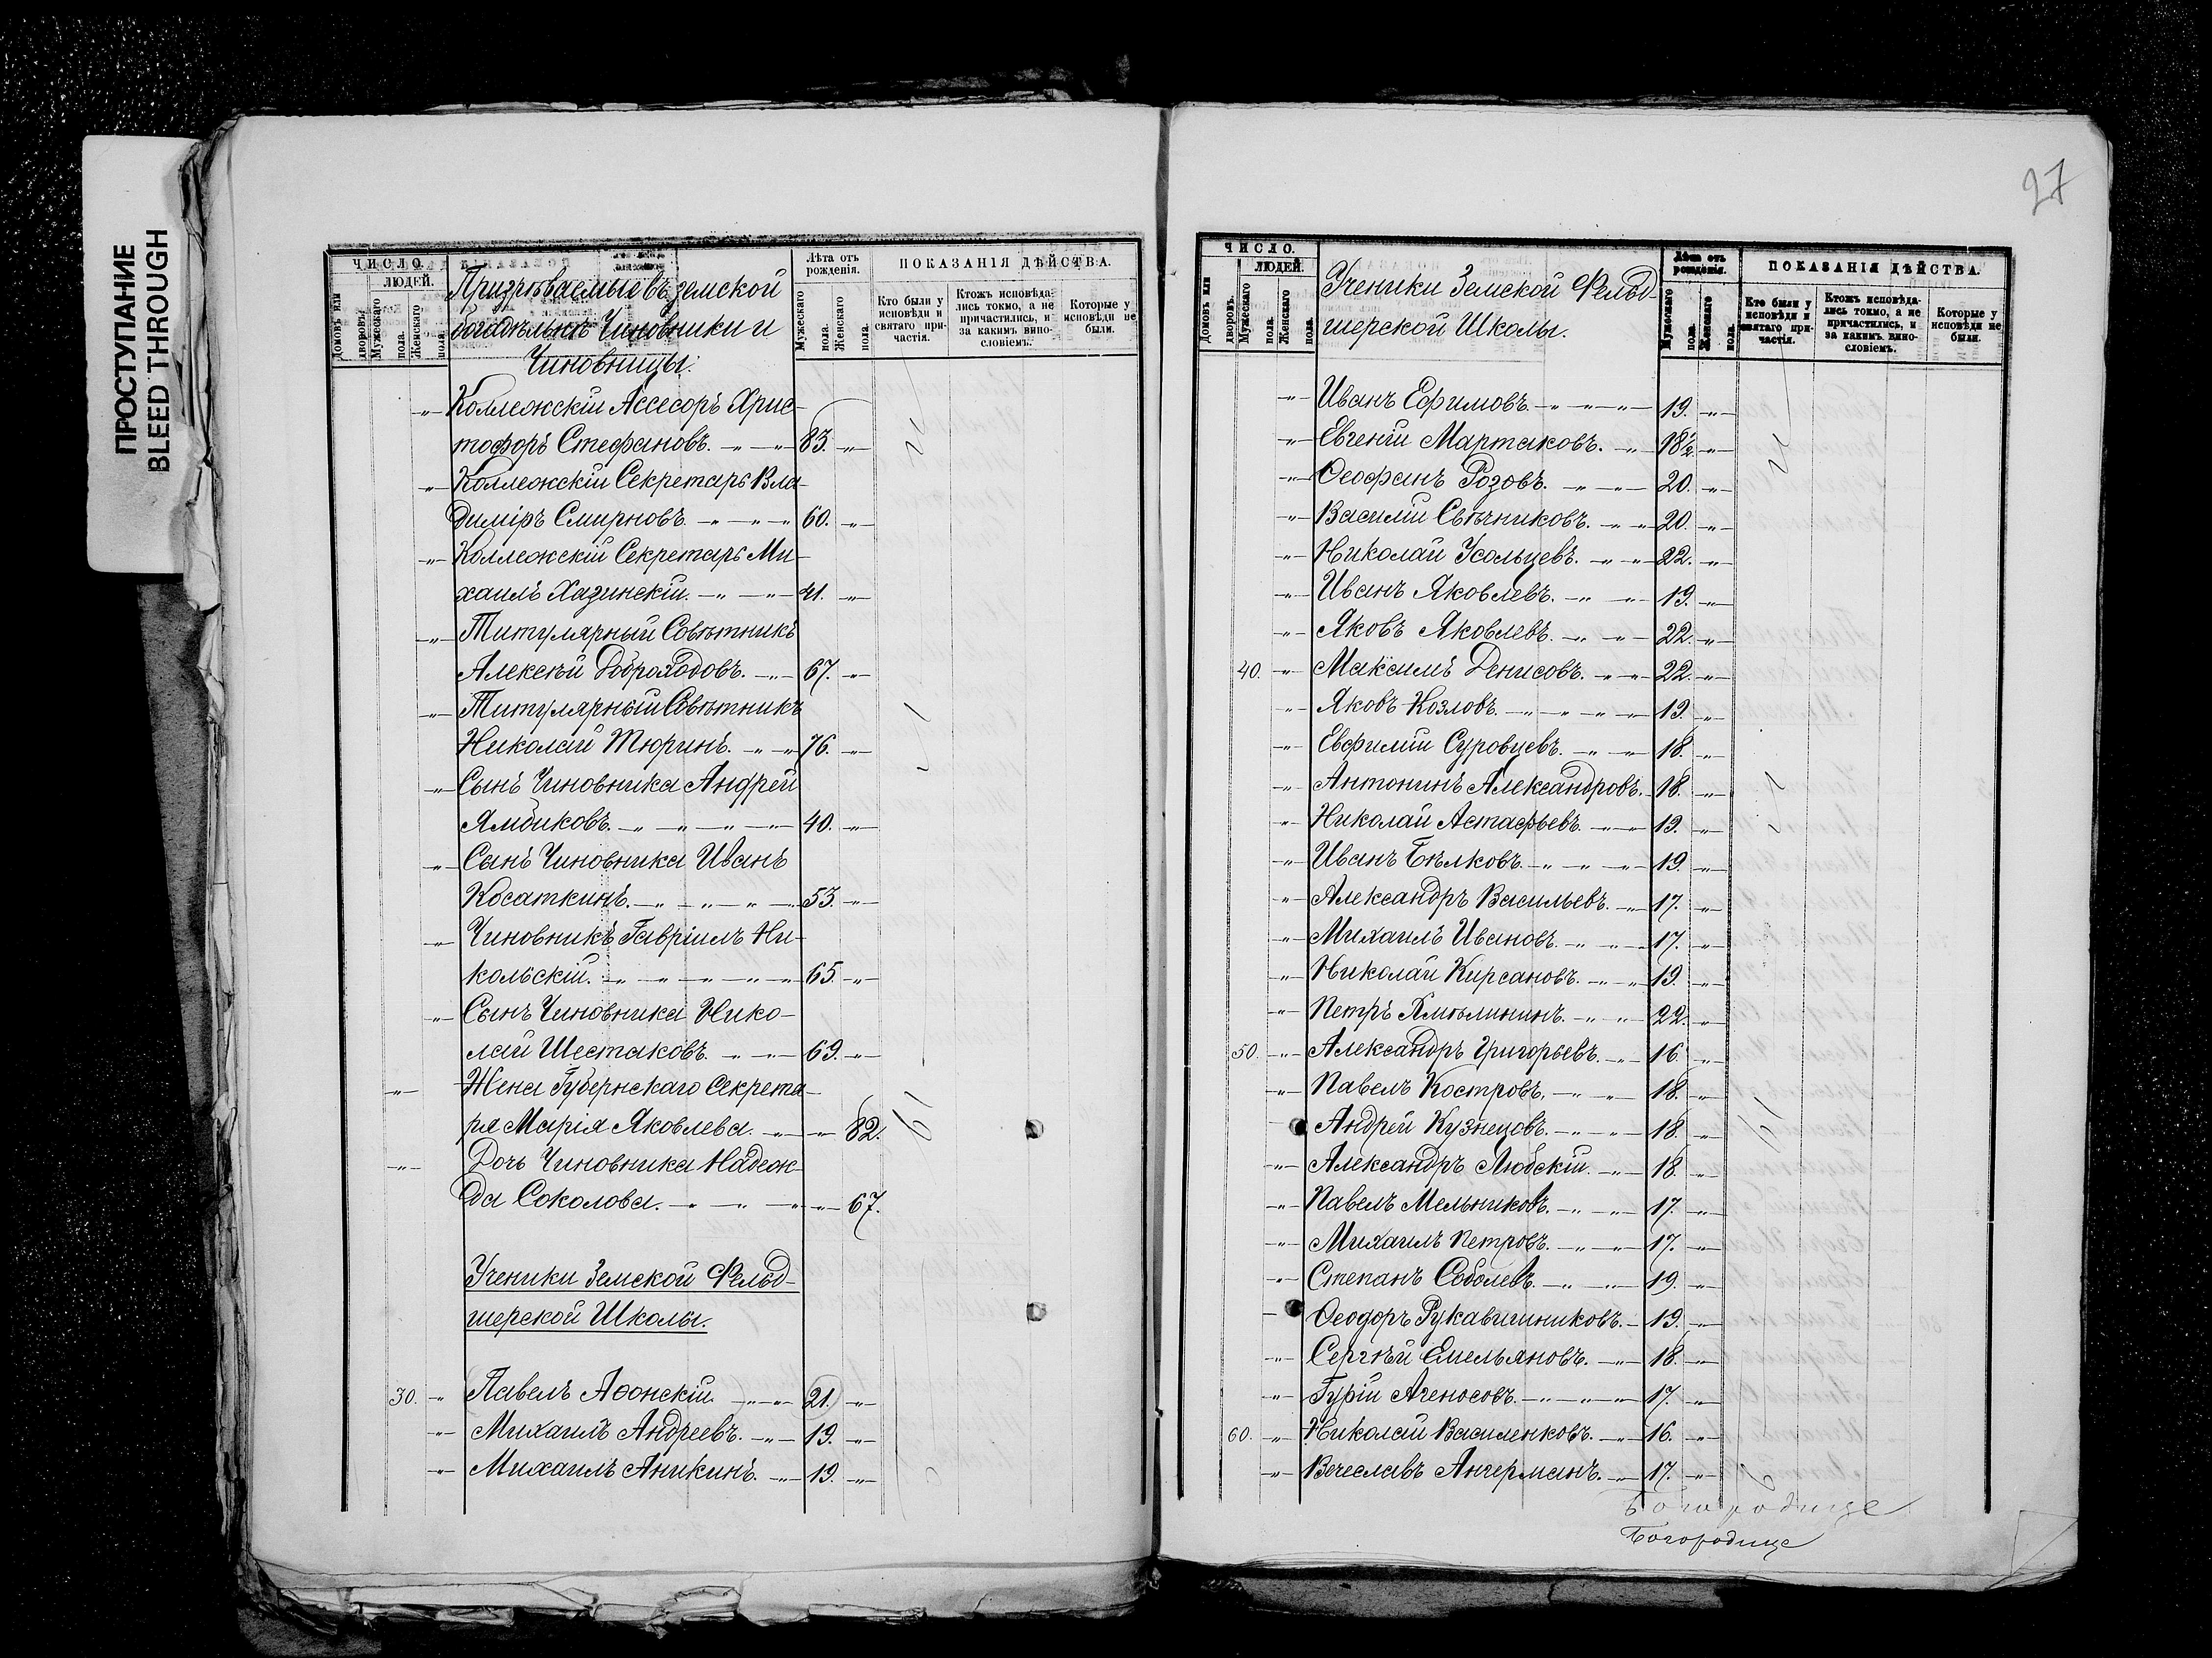 ПРОСТУПАНИЕ
BLEED THROUGH
ЧИСЛО.
ЛЮДЕЙ.
Домовъ или дворовъ.
Мужескаго пола.
Женскаго пола.
Призрѣваемые въ земской
богадѣльнѣ Чиновники и
Чиновницы:
Лѣта отъ рожденія.
Мужескаго пола.
Женскаго пола.
ПОКАЗАНІЯ ДѢЙСТВА.
Кто были у исповѣди и святаго при-частія.
Ктожъ исповѣда-лись токмо, а не причастились, и за какимъ вино-словіемъ.
Которые у исповѣди не были.
-"- Коллежскій Ассесоръ Хрис-
тофоръ Стефановъ. -"- -"- 83. -"-
-"- Коллежскій Секретарь Вла-
диміръ Смирновъ. -"- -"- 60. -"-
-"- Коллежскій Секретарь Ми-
хаилъ Хазинскій. -"- -"- 41. -"-
-"- Титулярный Совѣтникъ
Алексѣй Доброходовъ. -"- 67. -"-
-"- Титулярный Совѣтникъ
Николай Тюринъ. -"- -"- 76. -"-
-"- Сынъ Чиновника Андрей
Ямбиковъ. -"- -"- -"- -"- 40. -"-
-"- Сынъ Чиновника Иванъ
Косаткинъ. -"- -"- -"- -"- 53. -"-
-"- Чиновникъ Гавріилъ Ни-
кольскій. -"- -"- -"- -"- 65. -"-
-"- Сынъ Чиновника Нико-
лай Шестаковъ. -"- -"- 69. -"-
-"- Жена Губернскаго Секрета-
ря Марія Яковлева. -"- -"- 82.
-"- Дочь Чиновника Надеж-
да Соколова. -"- -"- -"- -"- 67.
Ученики Земской Фельд-
шерской Школы.
30. -"- Павелъ Аѳонскій. -"- -"- 21. -"-
-"- Михаилъ Андреевъ. -"- 19. -"-
-"- Михаилъ Аникинъ. -"- 19. -"-
27
ЧИСЛО.
ЛЮДЕЙ.
Домовъ или дворовъ.
Мужескаго пола.
Женскаго пола.
Ученики Земской Фельд-
шерской Школы.
Лѣта отъ рожденія.
Мужескаго пола.
Женскаго пола.
ПОКАЗАНІЯ ДѢЙСТВА.
Кто были у исповѣди и святаго при-частія.
Ктожъ исповѣда-лись токмо, а не причастились, и за какимъ вино-словіемъ.
Которые у исповѣди не были.
-"- Иванъ Ефимовъ. -"- -"- -"- 19. -"-
-"- Евгеній Мартаковъ. -"- 18½. -"-
-"- Ѳеофанъ Розовъ. -"- -"- 20. -"-
-"- Василій Свѣчниковъ. -"- -"- 20. -"-
-"- Николай Усольцевъ. -"- -"- 22. -"-
-"- Иванъ Яковлевъ. -"- -"- 19. -"-
-"- Яковъ Яковлевъ. -"- -"- 22. -"-
40. -"- Максимъ Денисовъ. -"- -"- 22. -"-
-"- Яковъ Козловъ. -"- -"- -"- -"- 19. -"-
-"- Евфимій Суровцевъ. -"- -"- 18. -"-
-"- Антонинъ Александровъ. 18. -"-
-"- Николай Астафьевъ. -"- -"- 19. -"-
-"- Иванъ Бѣлковъ. -"- -"- -"- 19. -"-
-"- Александръ Васильевъ. -"- 17. -"-
-"- Михаилъ Ивановъ. -"- -"- 17. -"-
-"- Николай Кирсановъ. -"- -"- 19. -"-
-"- Петръ Хмѣлининъ. -"- -"- 22. -"-
50. -"- Александръ Григорьевъ. -"- 16. -"-
-"- Павелъ Костровъ. -"- -"- 18. -"-
Андрей Кузнецовъ. -"- -"- 18. -"-
-"- Александръ Любскій. -"- 18. -"-
-"- Павелъ Мельниковъ. -"- -"- 17. -"-
-"- Михаилъ Петровъ. -"- -"- 17. -"-
-"- Степанъ Соболевъ. -"- -"- 19. -"-
Ѳеодоръ Рукавишниковъ. - 19. -"-
-"- Сергѣй Емельяновъ. -"- 18. -"-
-"- Гурій Агеносовъ. -"- -"- -"- 17. -"-
60. -"- Николай Василенковъ. -"- 16. -"-
-"- Вечеславъ Ангерманъ. -"- 17. -"-
Богородице
Богородице